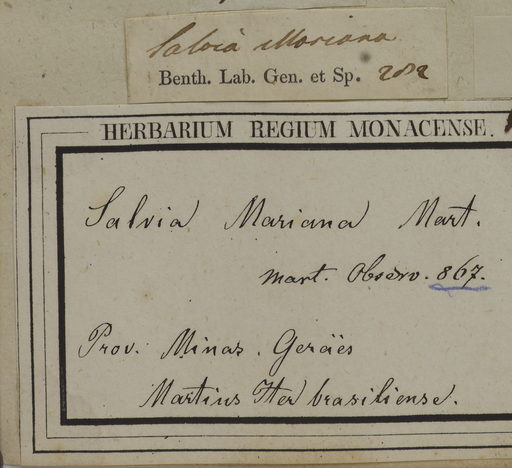 Salvia Mariana
Benth. Lab. Gen. et Sp. 282
HERBARIUM REGIUM MONACENSE.
Salvia Mariana Mart.
Mart. Observ. 867.
Prov. Minas. Geräes
Martius Iter brasiliense.